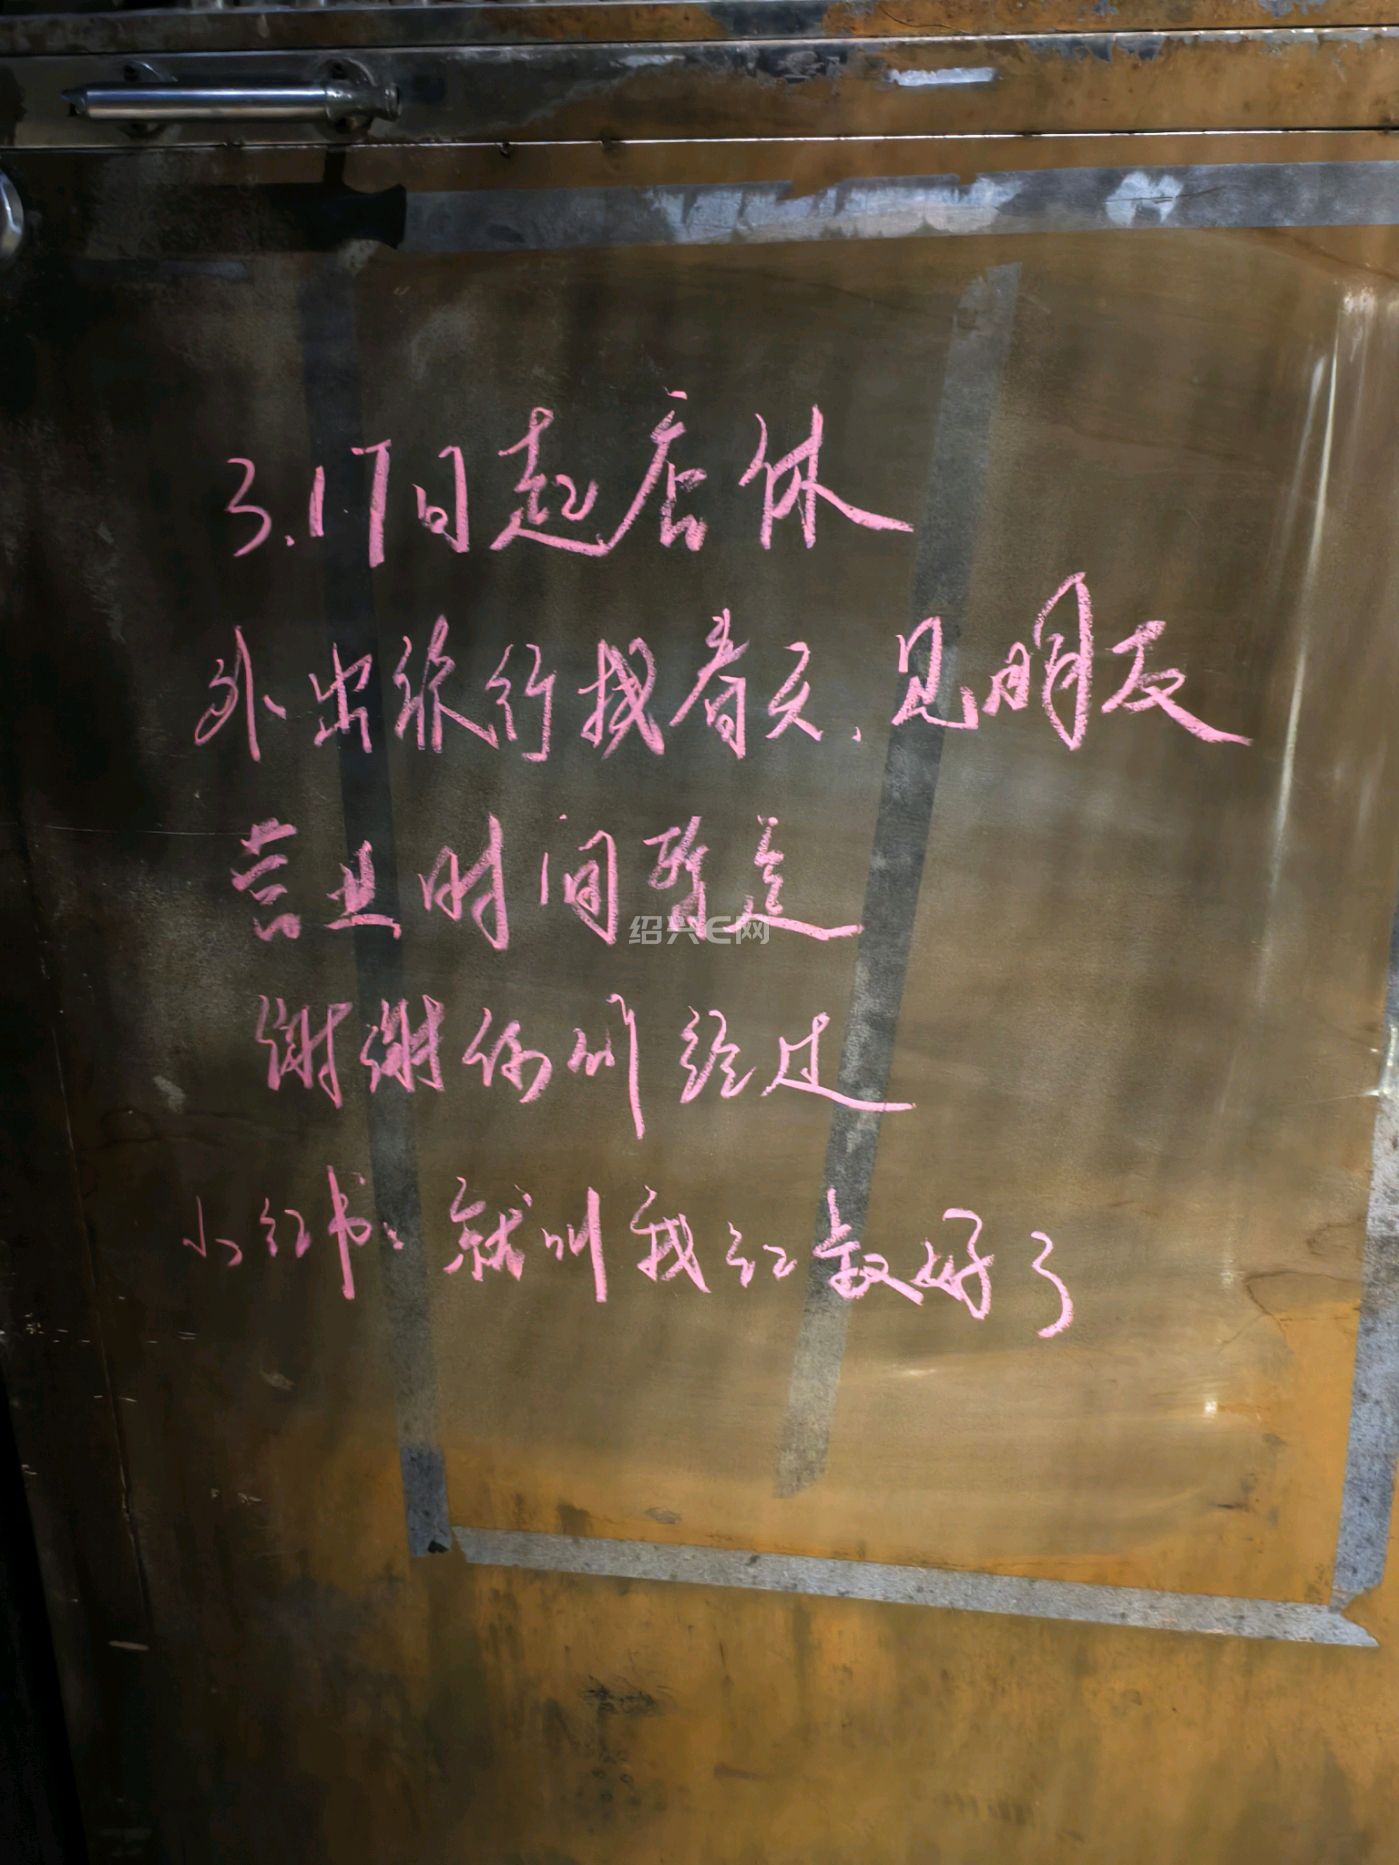 3.17日起店休
外出旅行找春天.见朋友
营业时间暂定
绍兴E网
谢谢你们经过
小红书:就叫我红叔好了